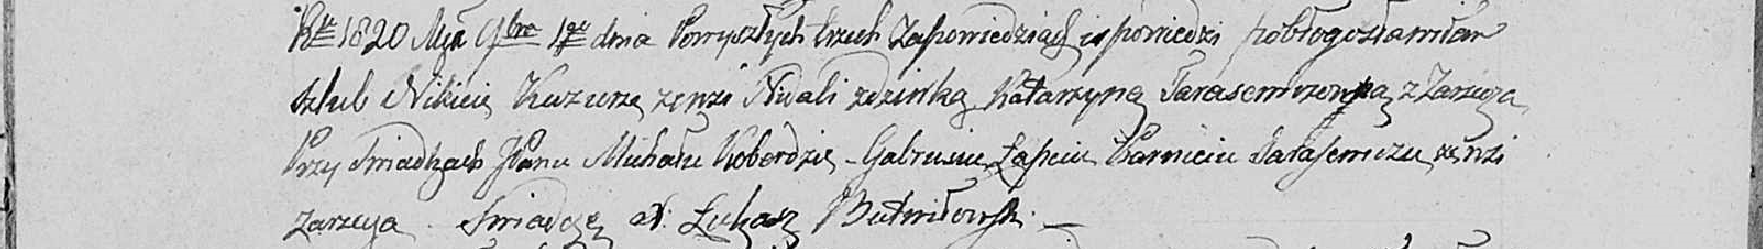 Rku 1820 Msca 9bra 1go dnia Po wyszłych trzech Zapowiedziach i spowiedzi pobłogosławiłem
szlub Nikicie Kuzurze z wsi Niwali z dziewką Katarzyną Tarasewiczowną z Zarzuya
Przy Swiadkach JPanu Michału Koberdzie Gabrusiu Łapciu Parwieiu Tarasewiczu z wsi
Zarzuya Swiadczę X: Łukasz Butwiłowski